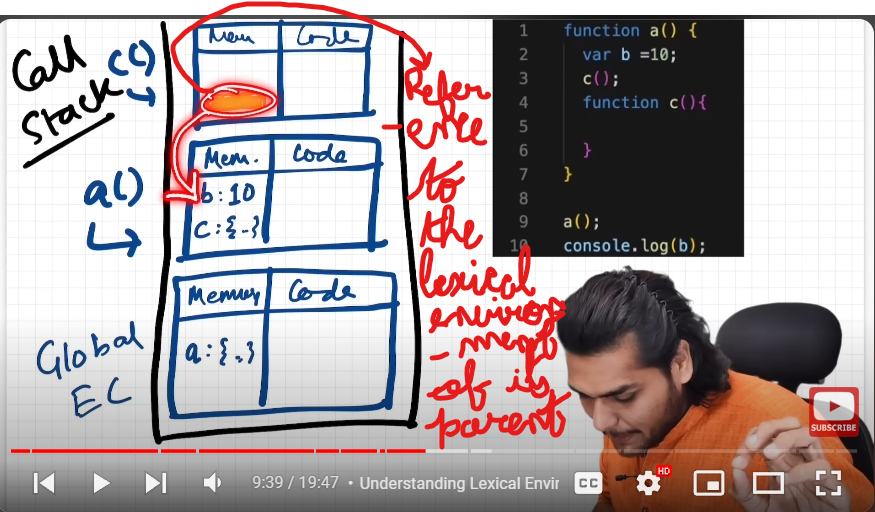 Call
Stack
c()
Mem
Code
a()
Mem.
Code
b:10
c:{-}
Global
EC
Memory
Code
a:{.}
Refer
-ence
to
the
lexical
environ
-ment
of is
parent
1 function a() {
2 var b =10;
3 c();
4 function c(){
5
6 }
7 }
8
9 a();
10 console.log(b);
SUBSCRIBE
9:39 / 19:47 • Understanding Lexical Envir
CC
HD